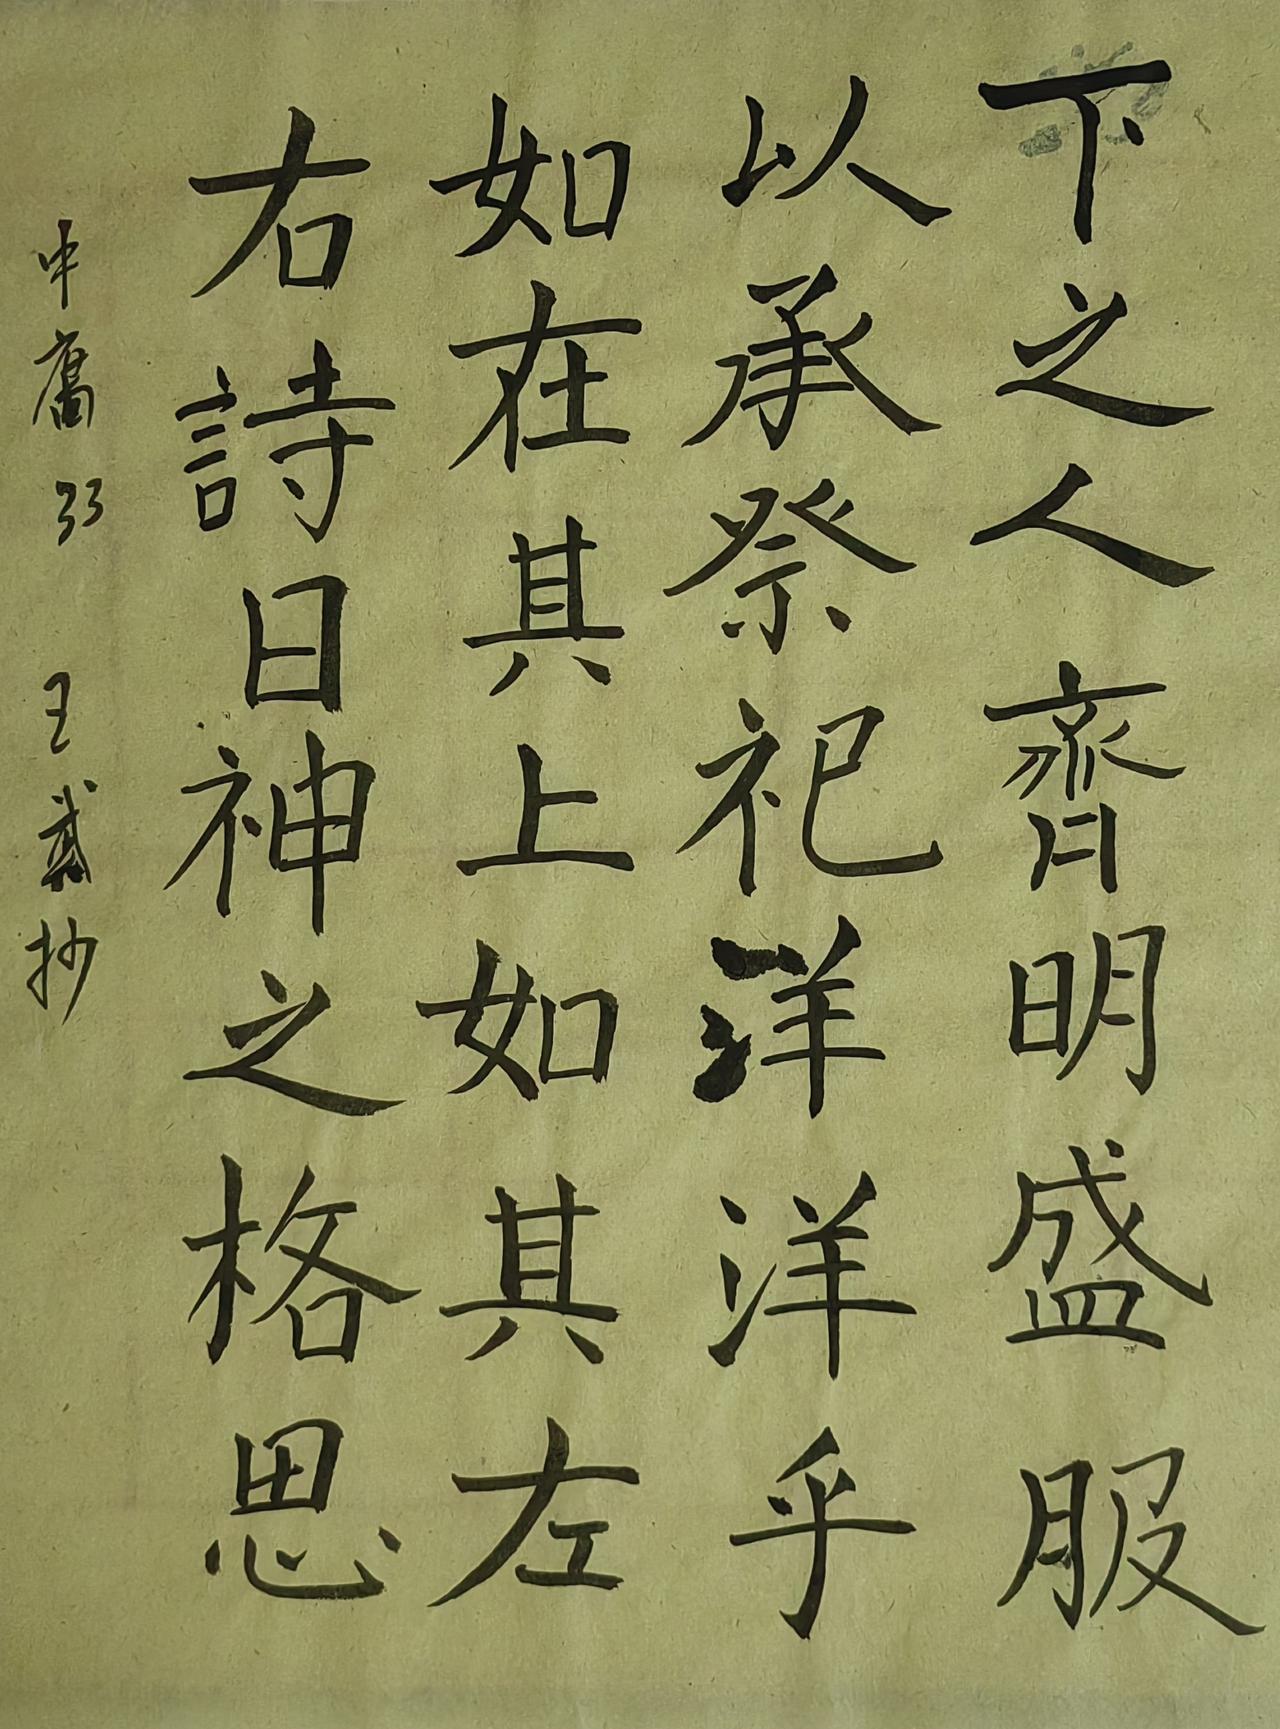 下之人齊明盛服
以承祭祀洋洋乎
如在其上如其左
右詩曰神之格思
中庸33 王 抄